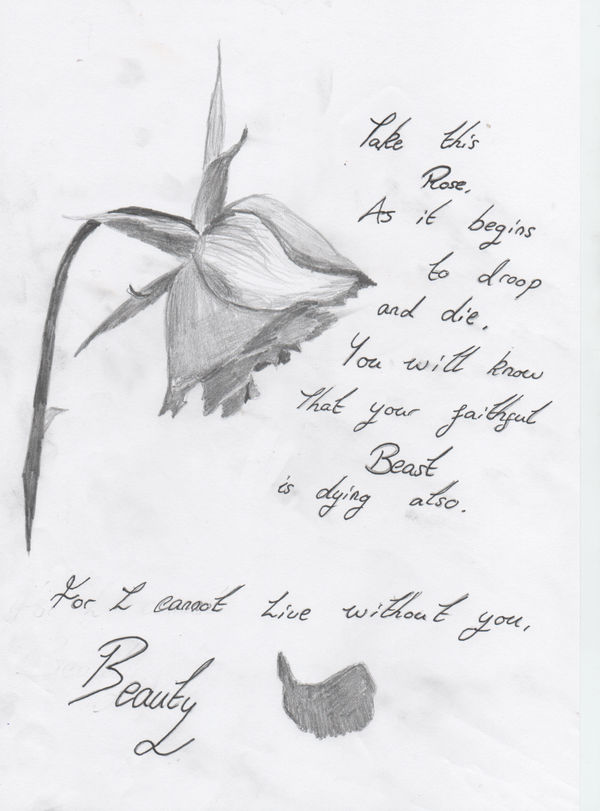 Take this
Rose,
As it begins
to droop
and die,
You will know
that your faithful
Beast
is dying also.
For I cannot live without you,
Beauty